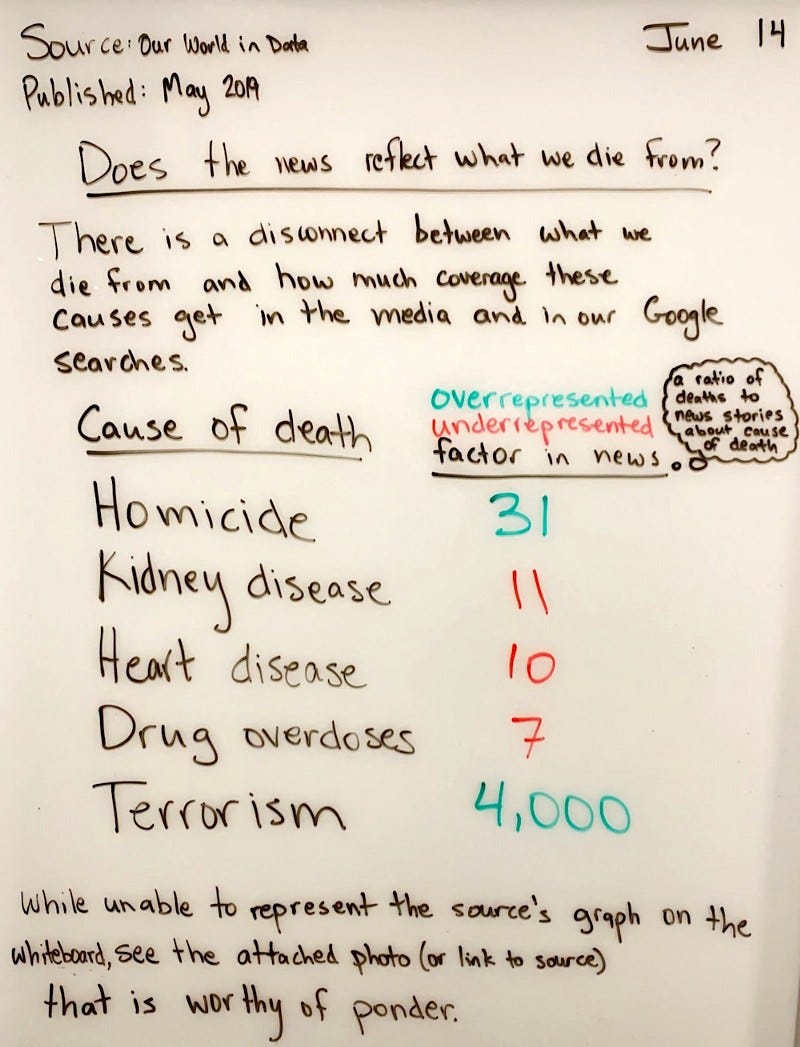 Source: Our World in Data
June 14
Published: May 2019
Does the news reflect what we die from?
There is a disconnect between what we
die from and how much coverage these
causes get in the media and in our Google
searches.
Cause of death
overrepresented
underrepresented
factor in news
a ratio of
deaths to
news stories
about cause
of death
Homicide 31
Kidney disease 11
Heart disease 10
Drug overdoses 7
Terrorism 4,000
While unable to represent the source's graph on the
whiteboard, see the attached photo (or link to source)
that is worthy of ponder.